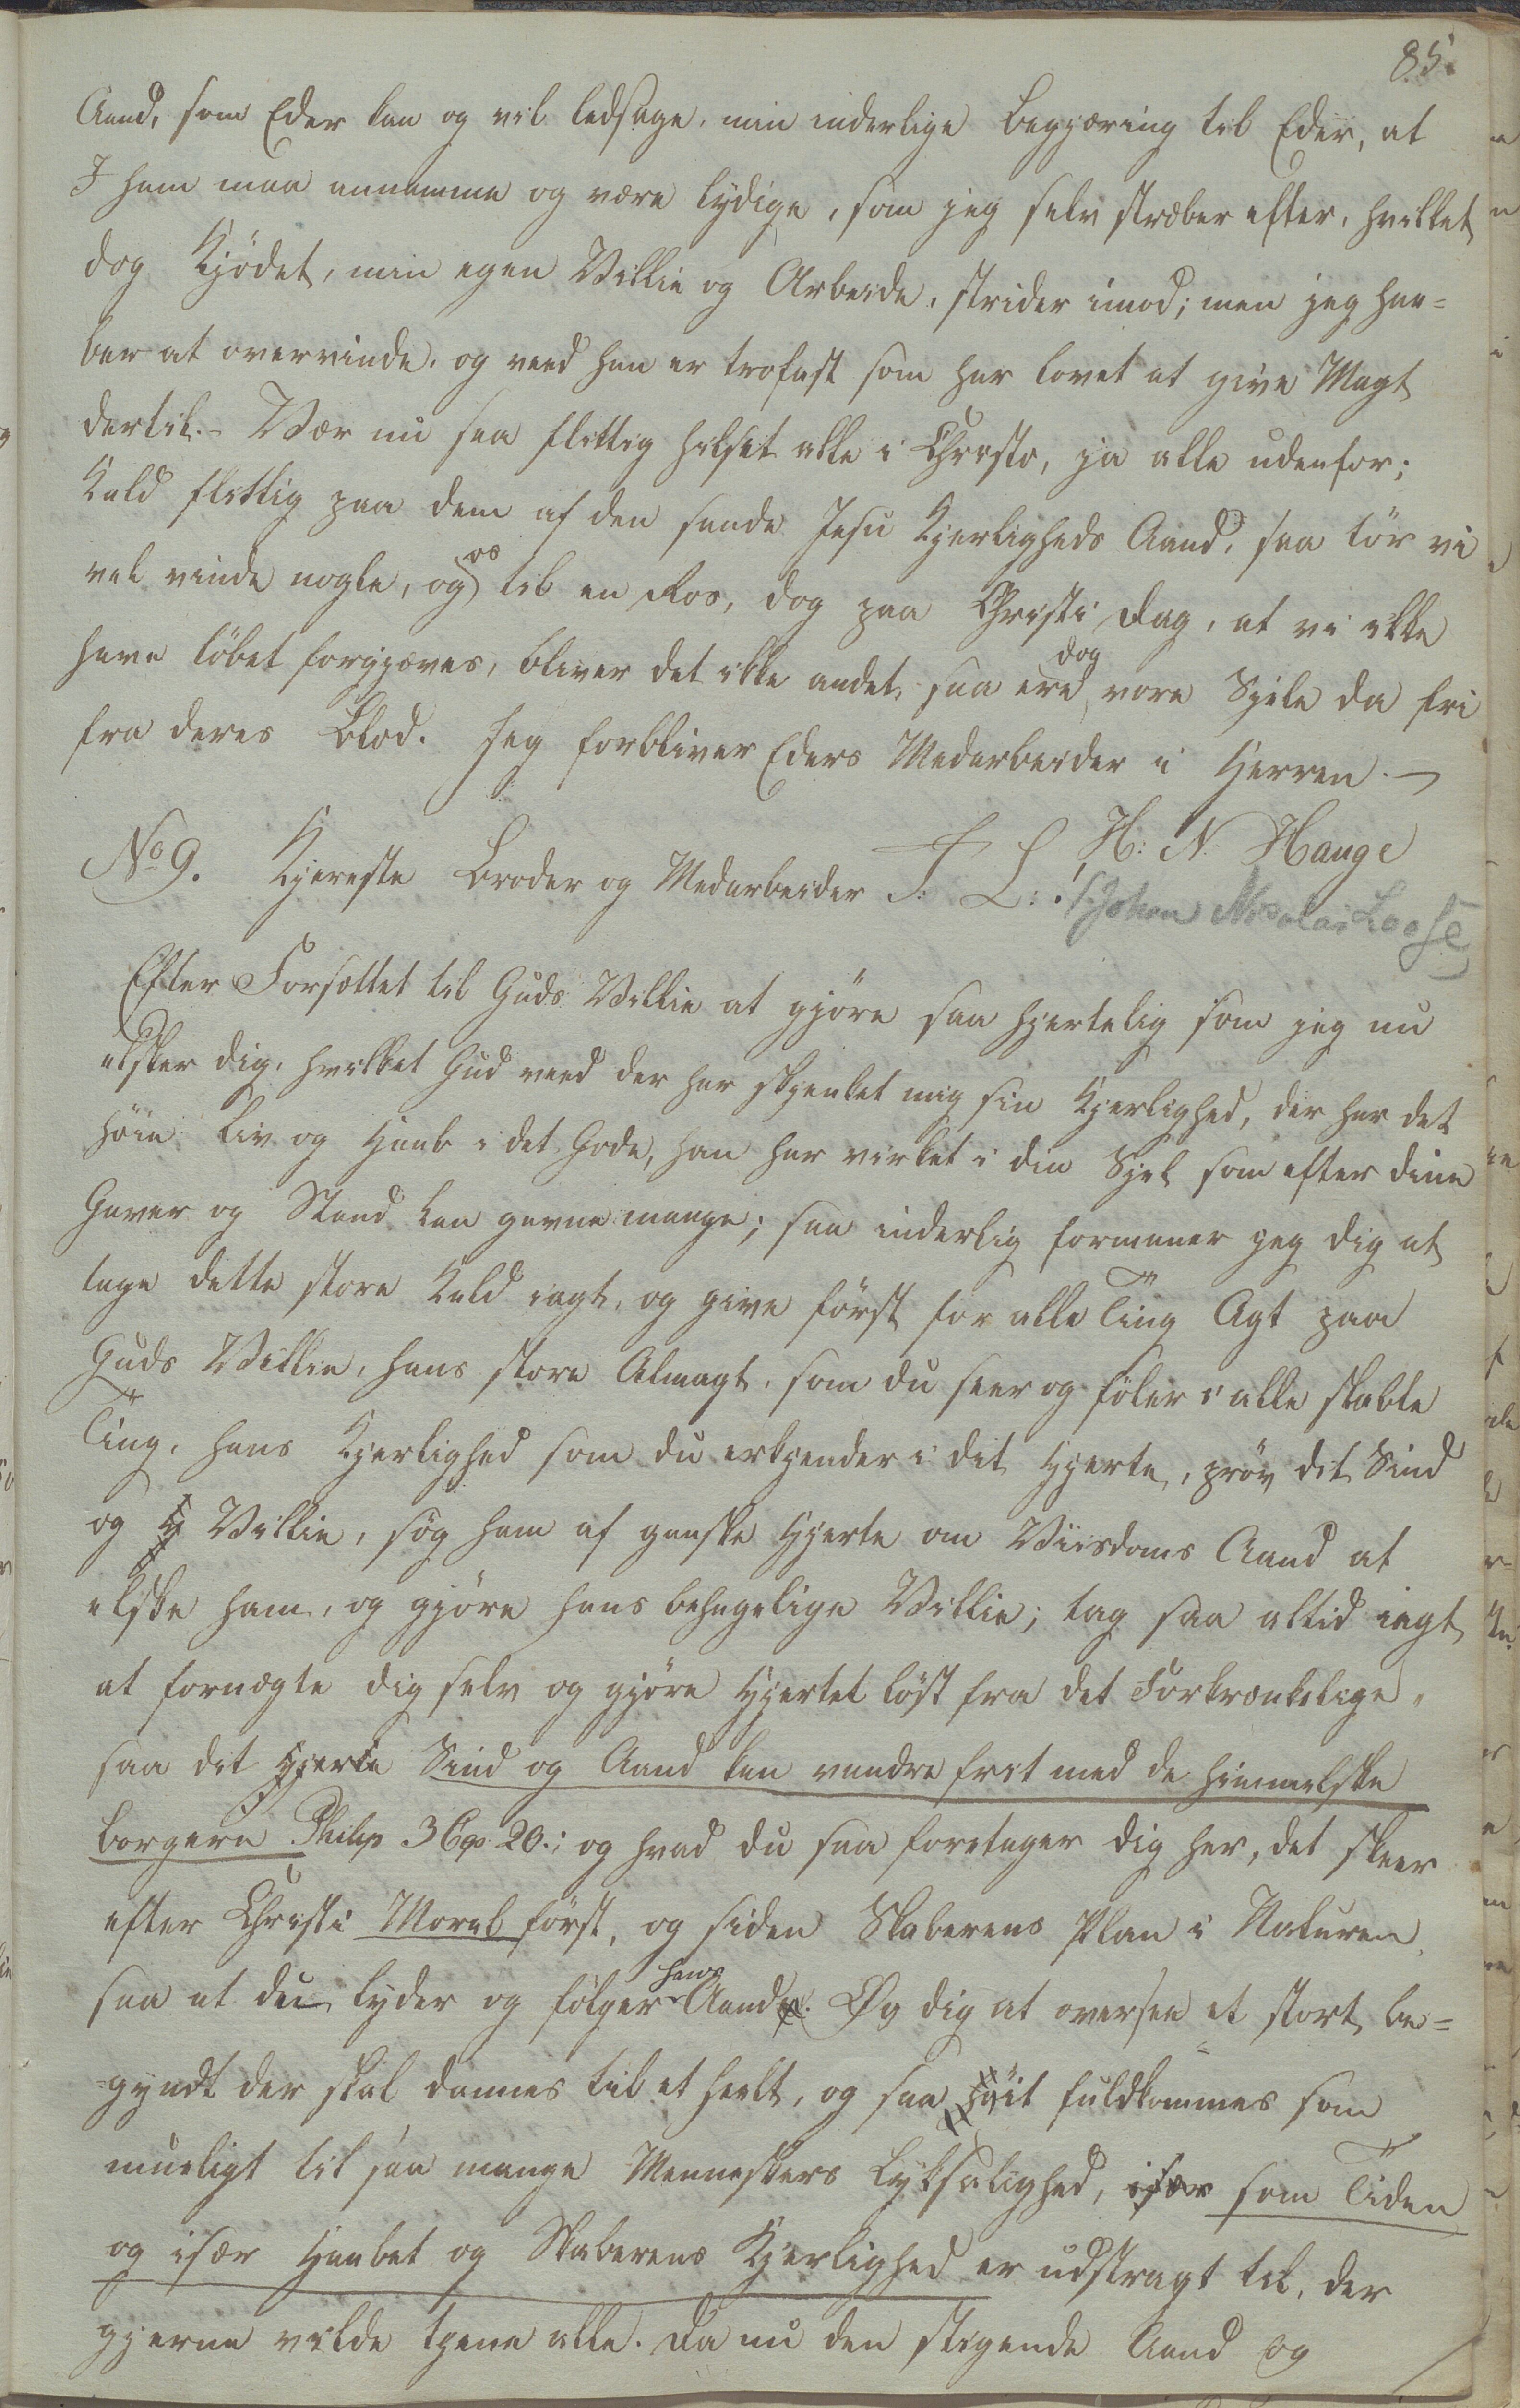 85.
Aand, som Eder kan og vil ledsage, min inderlige Begjæring til Eder, at
I ham maa annamme og være lydige, som jeg selv stræber efter, hvilket
dog Kjödet, min egen Villie og Arbeide, strider imod; men jeg haa=
ber at overvinde, og veed han er trofast som har lovet at give Magt
dertil. - Vær nu saa flittig hilset alle i Christo, ja alle udenfor;
Kald flittig paa dem af den sande Jesu Kjerligheds Aand, saa tör vi
vel vinde nogle, og os til en Ros, dog paa Christi Dag, at vi ikke
have löbet forgjæves, bliver det ikke andet, saa ere dog vore Sjele da fri
fra deres Blod. Jeg forbliver Eders Medarbeider i Herren. —
H: N. Hauge
No 9. Kjereste Broder og Medarbeider J: L:! (: Johan Nicolai Loose
Efter Forsættet til Guds Villie at gjöre saa hjertelig som jeg nu
elsker dig, hvilket Gud veed der har skjenket mig sin Kjerlighed, der har det
höie Liv og Haab i det Gode, han har virket i din Sjel som efter dine
Gaver og Stand kan gavne mange; saa inderlig formaner jeg dig at
tage dette store Kald iagt, og give först for alle Ting Agt paa
Guds Villie, hans store Almagt, som du seer og föler i alle skabte
Ting, hans Kjerlighed som du erkjender i dit Hjerte, pröv dit Sind
og Villie, sög ham af ganske Hjerte om Viisdoms Aand at
elske ham, og gjöre hans behagelige Villie; tag saa altid iagt
at fornægte dig selv og gjöre Hjertet löst fra det Forkrænkelige,
saa dit Hjerte Sind og Aand kan vandre frit med de himmelske
borgere Philip 3 Cp 20.; og hvad du saa foretager dig her, det skeer
efter Christi Moral först, og siden Skaberens Plan i Naturen,
saa at du lyder og fölger hans Aand. Öv dig at oversee et stort be=
=gyndt der skal dannes til et heelt, og saa vit fuldkommes som
mueligt til saa mange Menneskers Lyksalighed, især som Tiden
og især Haabet og Skaberens Kjerlighed er udstragt til, der
gjerne vilde tjene alle. Da nu den stigende Aand og